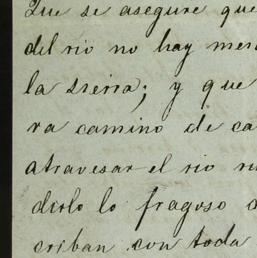 Que se asegure que
del rio no hay men
la sierra; y que
va camino de ca
atravesar el rio
dirlo lo fragoso
criban con toda